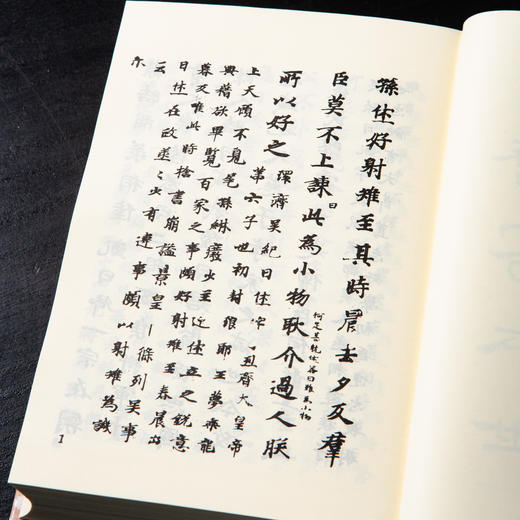 孫休好射雉至其時晨去夕反群
臣莫不上諫曰此為小物耿介過人朕
何足甚耽休答曰雖為小物
所以好之
環濟吳紀曰休字大皇帝
第六子也初封琅邪王夢乘龍
上天顧不見尾孫綝廢少主迎休立之銳意
典籍欲畢覽百家之事頗好射雉至春晨出
暮反唯此時捨書崩謚景皇條列吳事
曰休在政烝々少有違事頗以射雉為譏
云尒
1